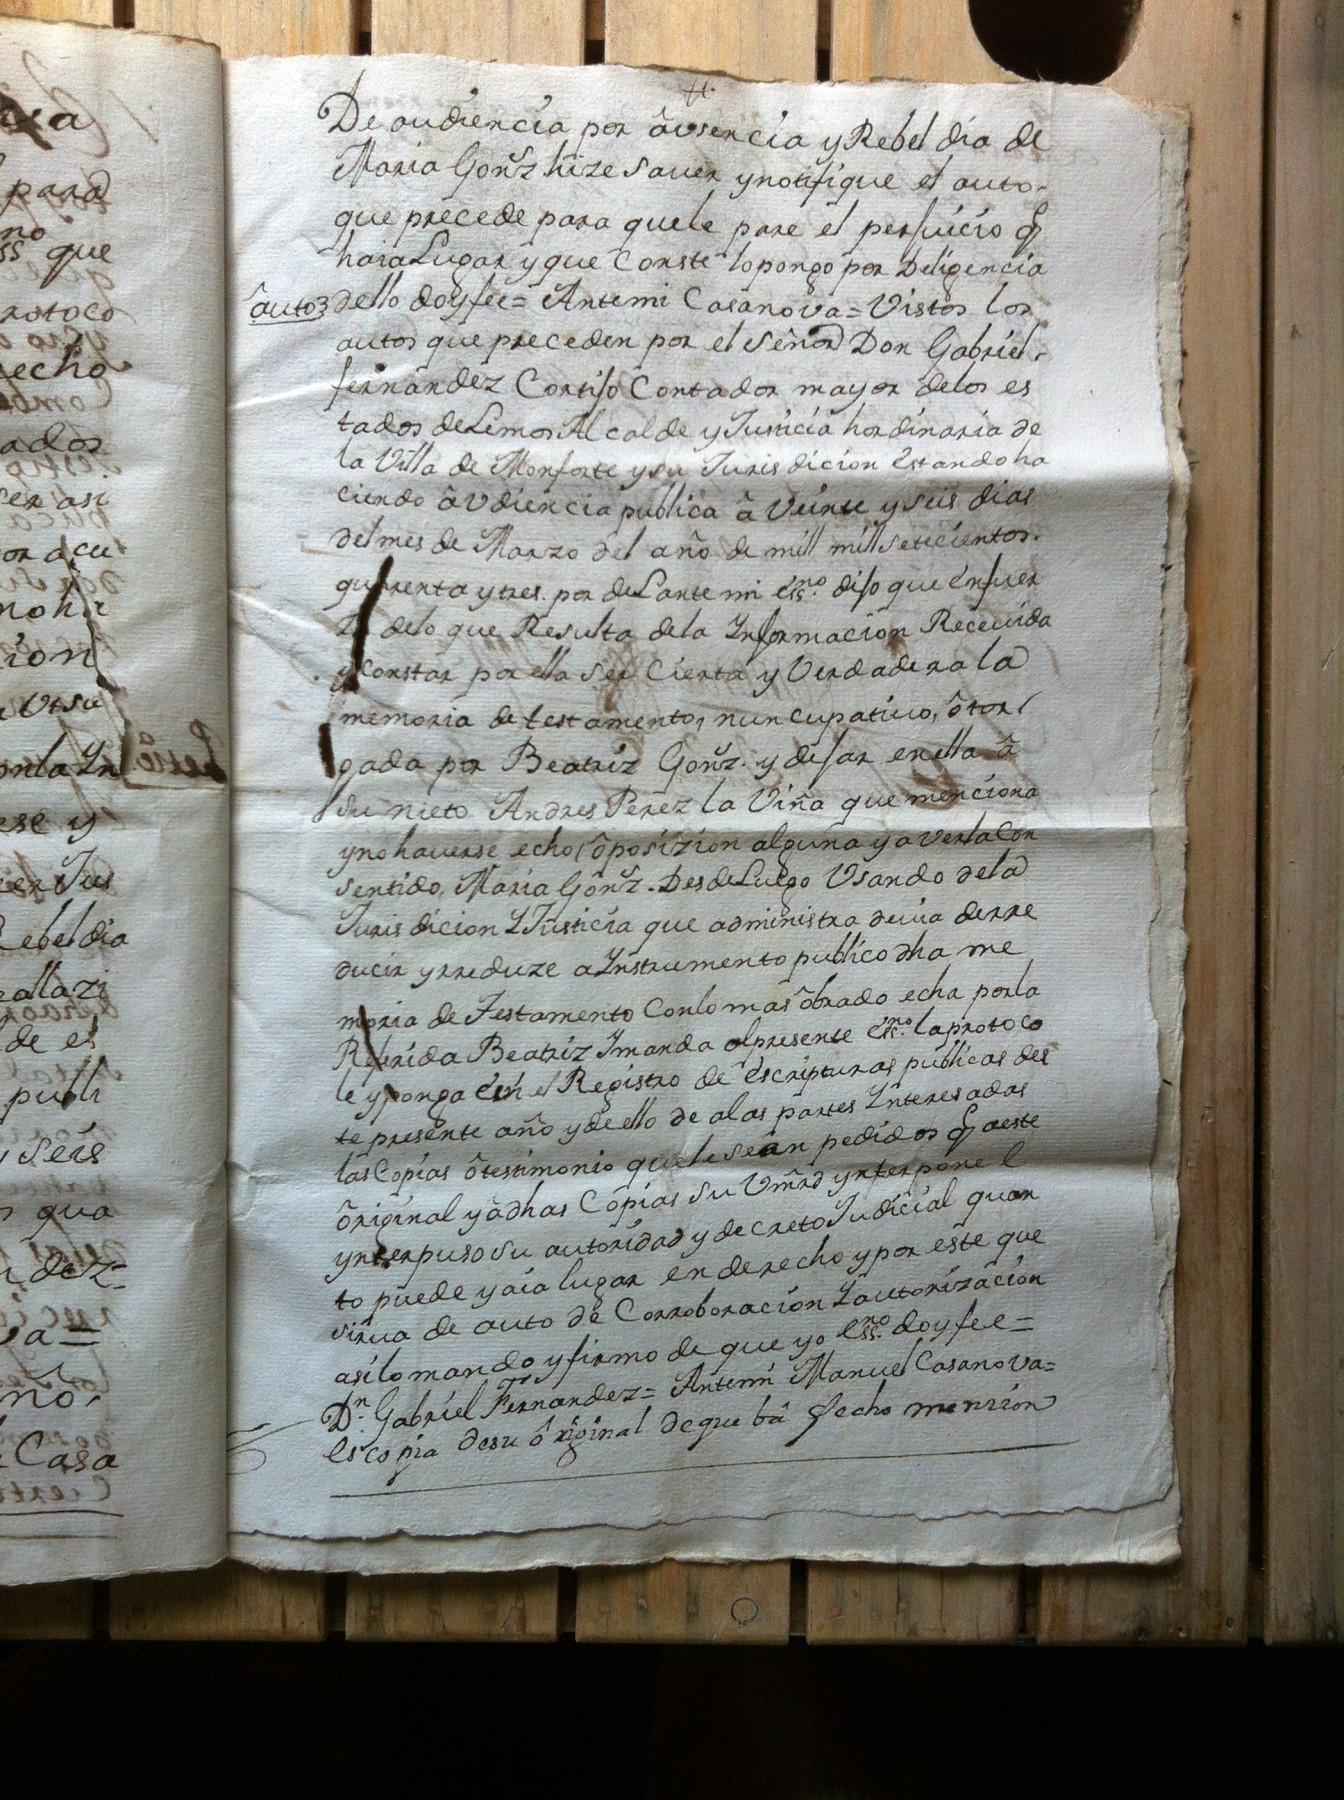 De audiencia por âusencia y Rebeldia de
Maria Gonz̃ hize Saver y notifique el auto
que precede para que le pare el perjuicio q̃
haia Lugar y que Conste lo pongo por Deligencia
âuto3 dello doyfee= Antemi Casanova= Vistos los
autos que preceden por el señor Don Gabriel
fernandez Cortiso Contador mayor delos es
tados de Lemos Alcalde y Justicia hordinaria de
la Villa de Monforte y su Juris dicion Estando ha
ciendo âVdiencia publica â Veinte y seis dias
del mes de Marzo del año de mill mill setecientos
quarenta y tres. por deLante mi ess.no dijo que en fuer
za delo que Resulta dela Ynformacion Recevida
y Constar por ella ser Cierta y Verdadera la
memoria de testamento, nuncupativo, ôtor
gada por Beatriz Gonz̃. y dejar en ella â
su nieto Andres Perez la Viña que menciona
y no haverse echo ôposizion alguna y averla Con
sentido, Maria Gonz̃. Desde Luego Usando dela
Juris dicion Y Justicia que administra devia derre
ducir y rreduze a Ynstrumento publico dha me
moria de Testamento Conlo mas ôbrado echa porla
Referida Beatriz Ymanda alpresente ess.no laprotoco
le y ponga en el Registro de escripturas publicas des
te presente año y de ello de alas partes Ynteresadas
las Copias ôtestimonio que le sean pedidos q̃ aeste
ôriginal y âdhas Copias su Vm̃rd ynterpone e
ynterpuso su autoridad y decreto Judicial quan
to puede y aia lugar en derecho y por este que
sirva de auto de Corroboracion Yautorizacion
asilo mando y firmo de que yo ess.no doyfee=
D.n Gabriel Fernandez= Antemi Manuel Casanova=
Es copia desu ôriginal de que bâ fecho mencion
para
que
rotoco
echo
ados
ser asi
ion
y
Rebeldia
de es
publi
y seis
qua
dez=
va=
Casa